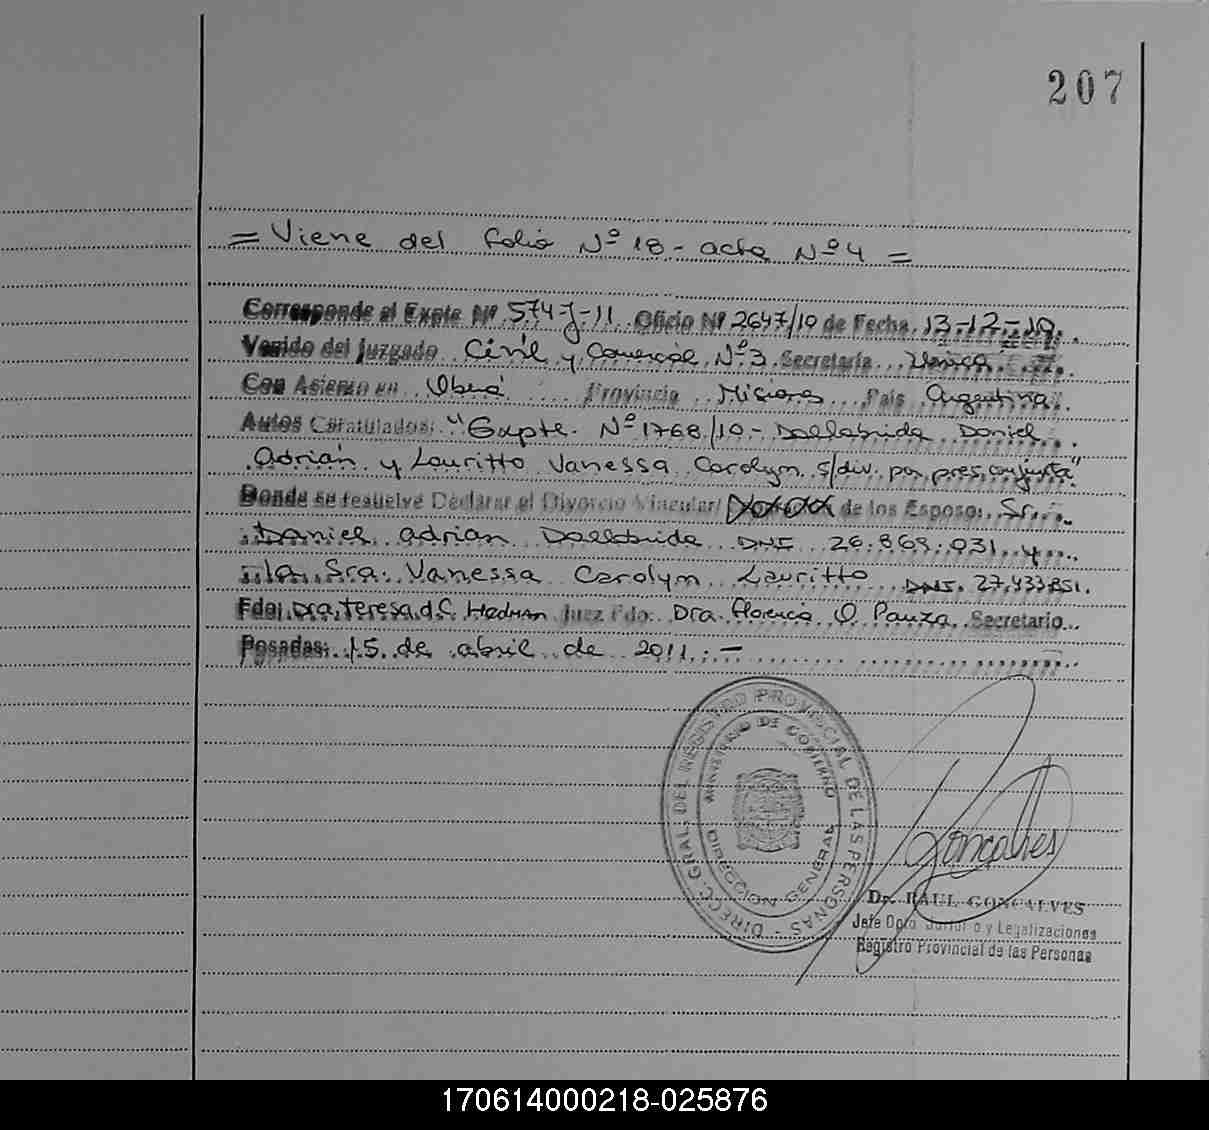 207
= Viene del folio Nº 18 - acta Nº 4 =
Corresponde al Expte Nº 574-J-11 Oficio Nº 2647/10 de Fecha 13-12-10.
Venido del Juzgado Civil y Comercial Nº 3 Secretaría Unica
Con Asiento en Oberá Provincia Misiones País Argentina
Autos Caratulados: "Expte. Nº 1768/10 - Dallabrida Daniel
Adrián y Lauritto Vanessa Carolym s/div. por pres. conjunta"
Donde se resuelve Declarar el Divorcio Vincular/ de los Esposo: Sr.
Daniel Adrian Dallabrida DNI 26.869.031 y
la Sra. Vanessa Carolym Lauritto DNI. 27.433.851.
Fdo: Dra. Teresa d.C. Hedman Juez Fdo: Dra. Florencia Pauza Secretario
Posadas: 15 de abril de 2011.-
DIRECC. GRAL. DEL REGISTRO PROVINCIAL DE LAS PERSONAS -
MINISTERIO DE GOBIERNO
DIRECCION GENERAL
Goncalves
Dr. RAUL GONCALVES
Jefe Dpto. y Legalizaciones
Registro Provincial de las Personas
170614000218-025876